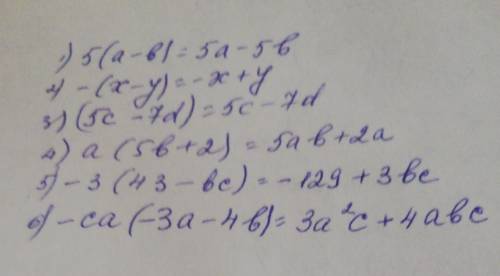 1) 5(a-b)=5a-5b
2) -(x-y)=-x+y
3) (5c-7d)=5c-7d
4) a(5b+2)=5ab+2a
5) -3(43-bc)=-129+3bc
6) -ca(-3a-4b)=3a²c+4abc